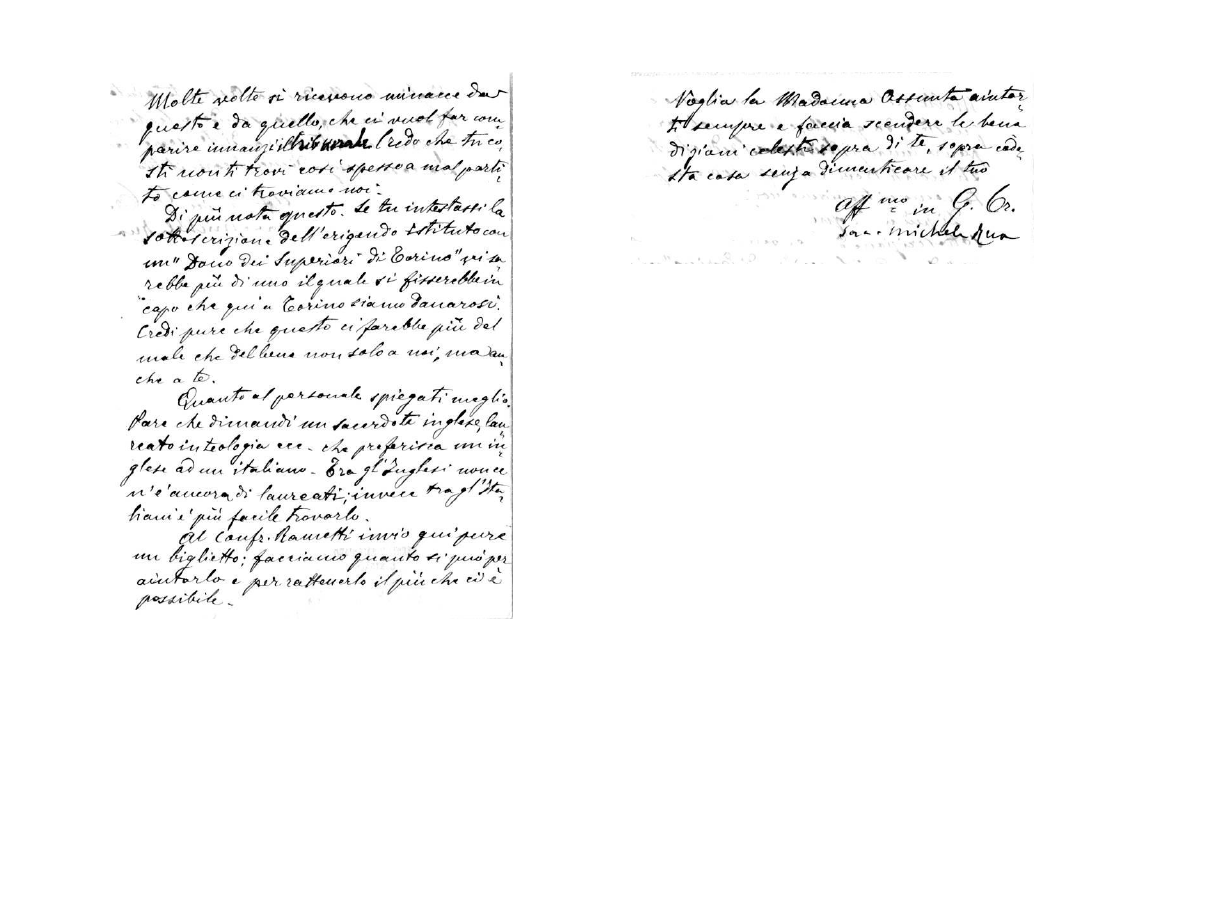 Molte volte si ricevono minacce da
questo e da quello, che ci vuol far com-
parire innanzi il tribunale. Credo che tu co-
sti non ti trovi così spesso a mal parti-
to come ci troviamo noi.
Di più nota questo. Se tu intestassi la
sottoscrizione dell'erigendo istituto con
un "Dono dei Superiori di Torino" vi sa-
rebbe più di uno il quale si fisserebbe in
capo che qui a Torino siamo danarosi.
Credi pure che questo ci farebbe più del
male che del bene non solo a noi, ma an-
che a te.
Quanto al personale spiegati meglio.
Pare che dimandi un sacerdote inglese, lau-
reato in teologia ecc. che preferisca un in-
glese ad un italiano. Tra gl'Inglesi non ce
n'è ancora di laureati; invece tra gl'Ita-
liani è più facile trovarlo.
Al Confr. Rametti invio qui pure
un biglietto; facciamo quanto si può per
aiutarlo e per rattenerlo il più che ci è
possibile.
Voglia la Madonna Assunta aiutar-
ti sempre e faccia scendere le bene
dizioni celesti sopra di te, sopra code-
sta casa senza dimenticare il tuo
Aff.mo in G. C.
Sac. Michele Rua